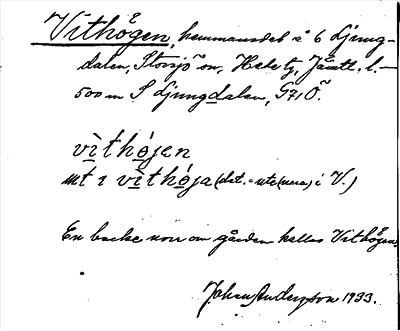 Vithögen, hemmansdel i 6 Ljung-
dalen, Storsjö sn, Hede tg, Jämtl. l. –
500 m S Ljungdalen, G71Ö.
vìthǿjen
ut i vìthǿja (dat. = ute (vara) i V.)
En backe norr om gården kallas Vithögen.
Johan Anderzson 1933.